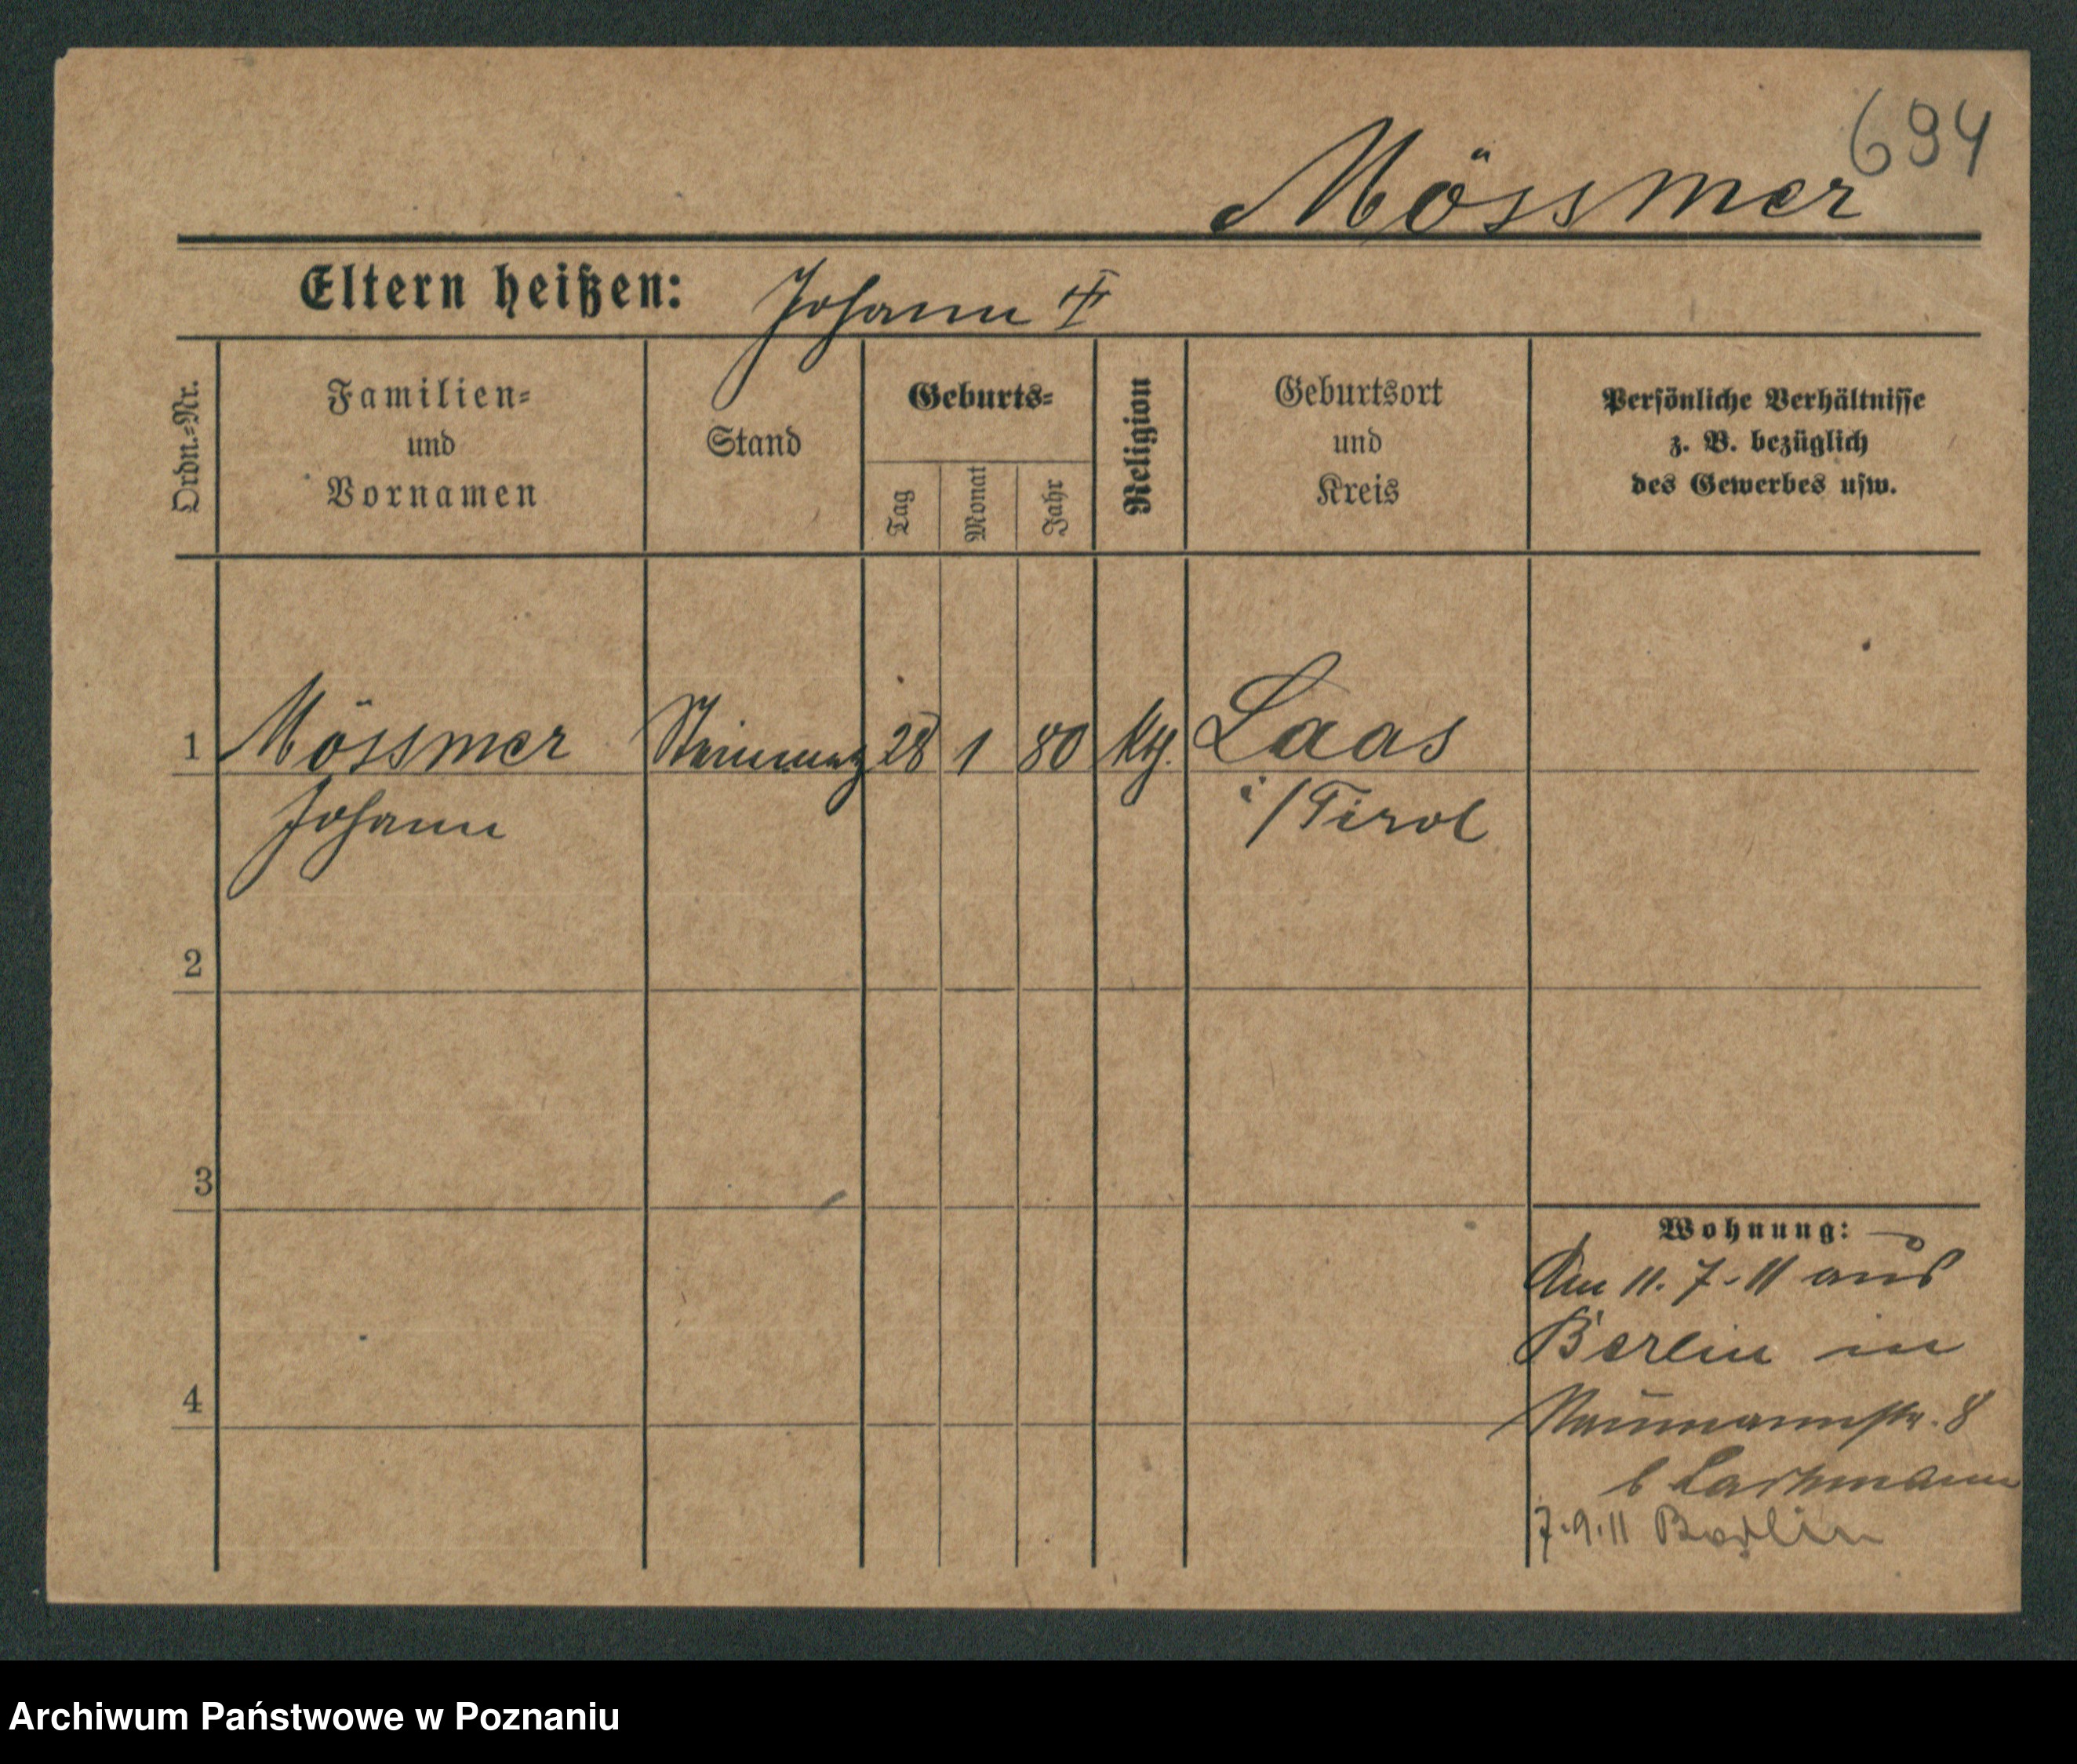 694
Mössmer
Eltern heißen: Johann †
Ordn.-Nr.
Familien- und Vornamen
Stand
Geburts-
Tag
Monat
Jahr
Religion
Geburtsort und Kreis
Persönliche Verhältnisse
z. B. bezüglich
des Gewerbes usw.
1 Mössmer Steinmetz 28 1 80 kth. Laas
Johann i/Tirol
2
3
4
Wohnung:
Am 11.7.11 aus
Berlin in
Naumannstr. 8
b Lachmann
7.9.11 Berlin
Archiwum Państwowe w Poznaniu